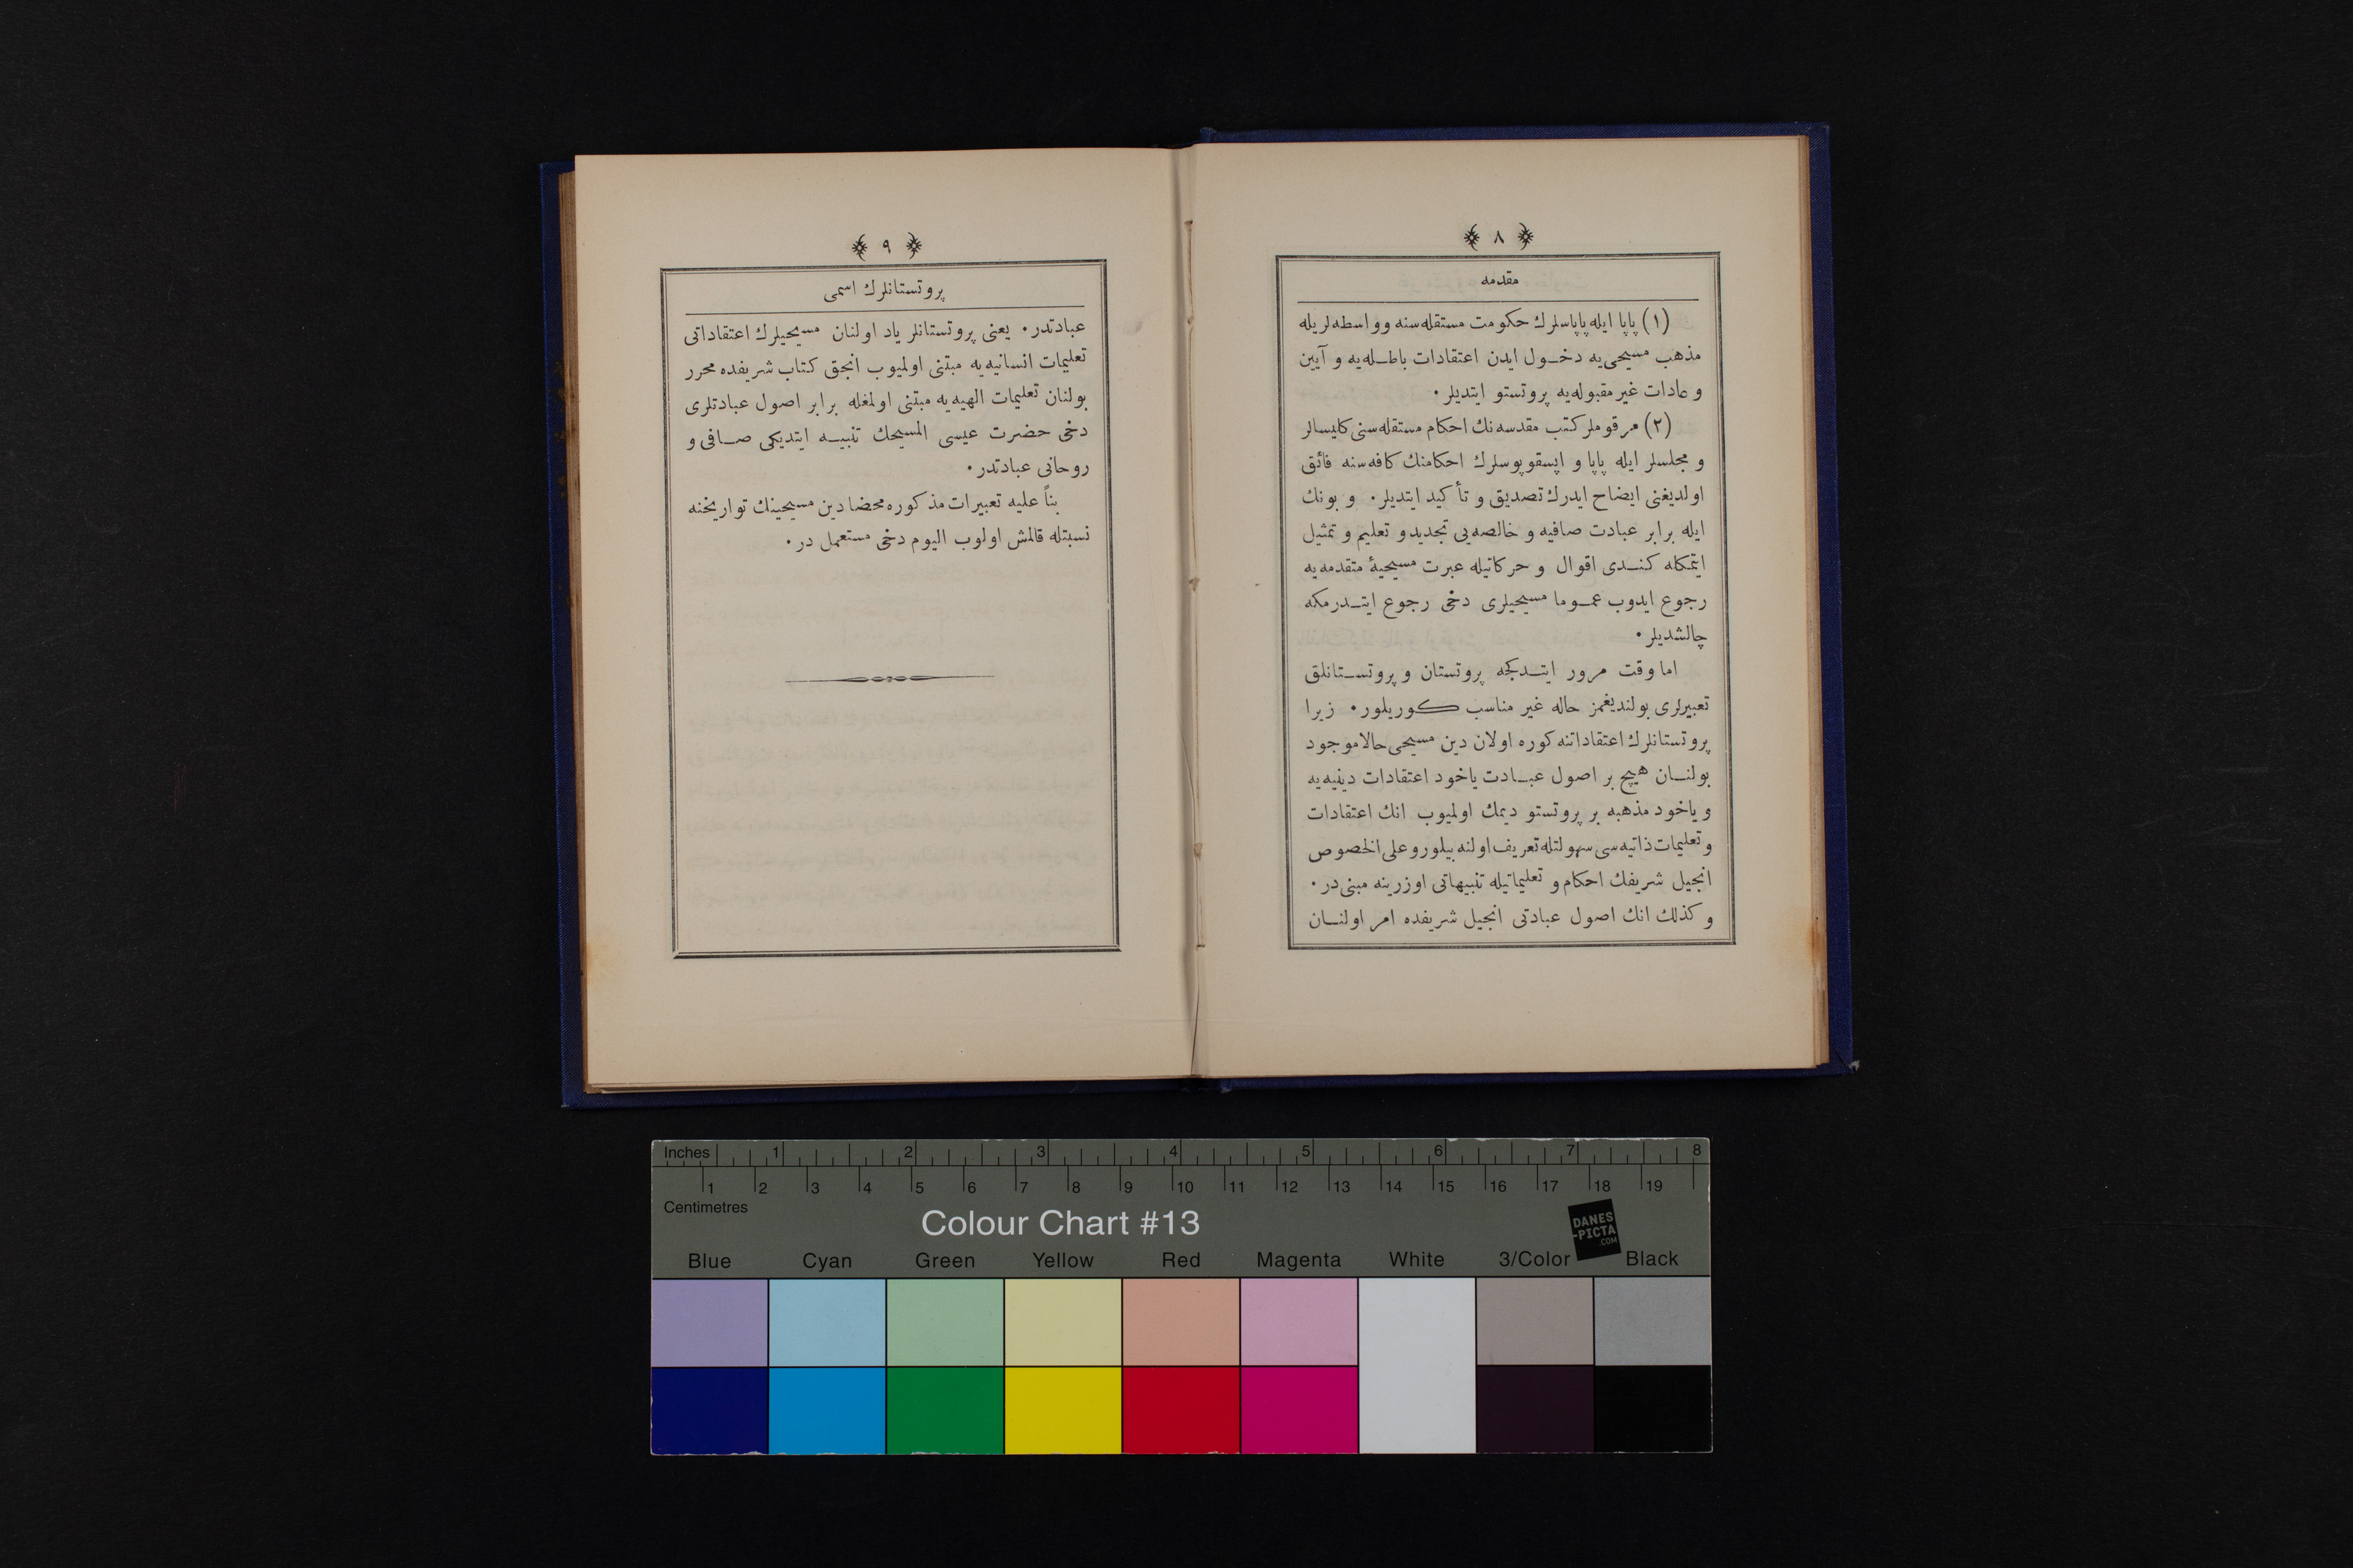 ٨
مقدمه
(١) پاپا ایله پاپاسلرك حكومت مستقله‌سنه و واسطه‌لریله
مذهب مسیحی‌یه دخـول ایدن اعتقادات باطـله‌یه و آیین
و عادات غیر مقبوله‌یه پروتستو ایتدیلر.
(٢) مرقوملر كتب مقدسه‌نك احكام مستقله‌سنی كلیسالر
و مجلسلر ایله پاپا و اپسقوپوسلرك احكامنك كافه‌سنه فائق
اولدیغنی ایضاح ایدرك تصدیق و تأكید ایتدیلر. و بونك
ایله برابر عبادت صافیه و خالصه‌یی تجدید و تعلیم و تمثیل
ایتمكله كنـدی اقوال و حركاتیله عبرت مسیحیۀ متقدمه‌یه
رجوع ایدوب عمـوما مسیحیلری دخی رجوع ایتـدرمكه
چالشدیلر.
اما وقت مرور ایتـدكجه پروتستان و پروتسـتانلق
تعبیرلری بولندیغمز حاله غیر مناسب كـوریلور. زیرا
پروتستانلرك اعتقاداتنه كوره اولان دین مسیحی حالا موجود
بولنـان هیچ بر اصول عبـادت یاخود اعتقادات دینیه‌یه
و یاخود مذهبه بر پروتستو دیمك اولمیوب انك اعتقادات
و تعلیمات ذاتیه‌سی سهولتله تعریف اولنه بیلور و علی الخصوص
انجیل شریفك احكام و تعلیماتیله تنبیهاتی اوزرینه مبنی در.
و كذلك انك اصول عبادتی انجیل شریفده امر اولنـان
٩
پروتستانلرك اسمی
عبادتدر. یعنی پروتستانلر یاد اولنان مسیحیلرك اعتقاداتی
تعلیمات انسانیه‌یه مبتنی اولمیوب انجق كتاب شریفده محرر
بولنان تعلیمات الهیه‌یه مبتنی اولمغله برابر اصول عبادتلری
دخی حضرت عیسی المسیحك تنبیـه ایتدیكی صـافی و
روحانی عبادتدر.
بناً علیه تعبیرات مذكوره محضا دین مسیحینك تواریخنه
نسبتله قالمش اولوب الیوم دخی مستعمل در.
Inches 1 2 3 4 5 6 7 8
1 2 3 4 5 6 7 8 9 10 11 12 13 14 15 16 17 18 19
Centimetres
Colour Chart #13
DANES
-PICTA
.COM
Blue Cyan Green Yellow Red Magenta White 3/Color Black